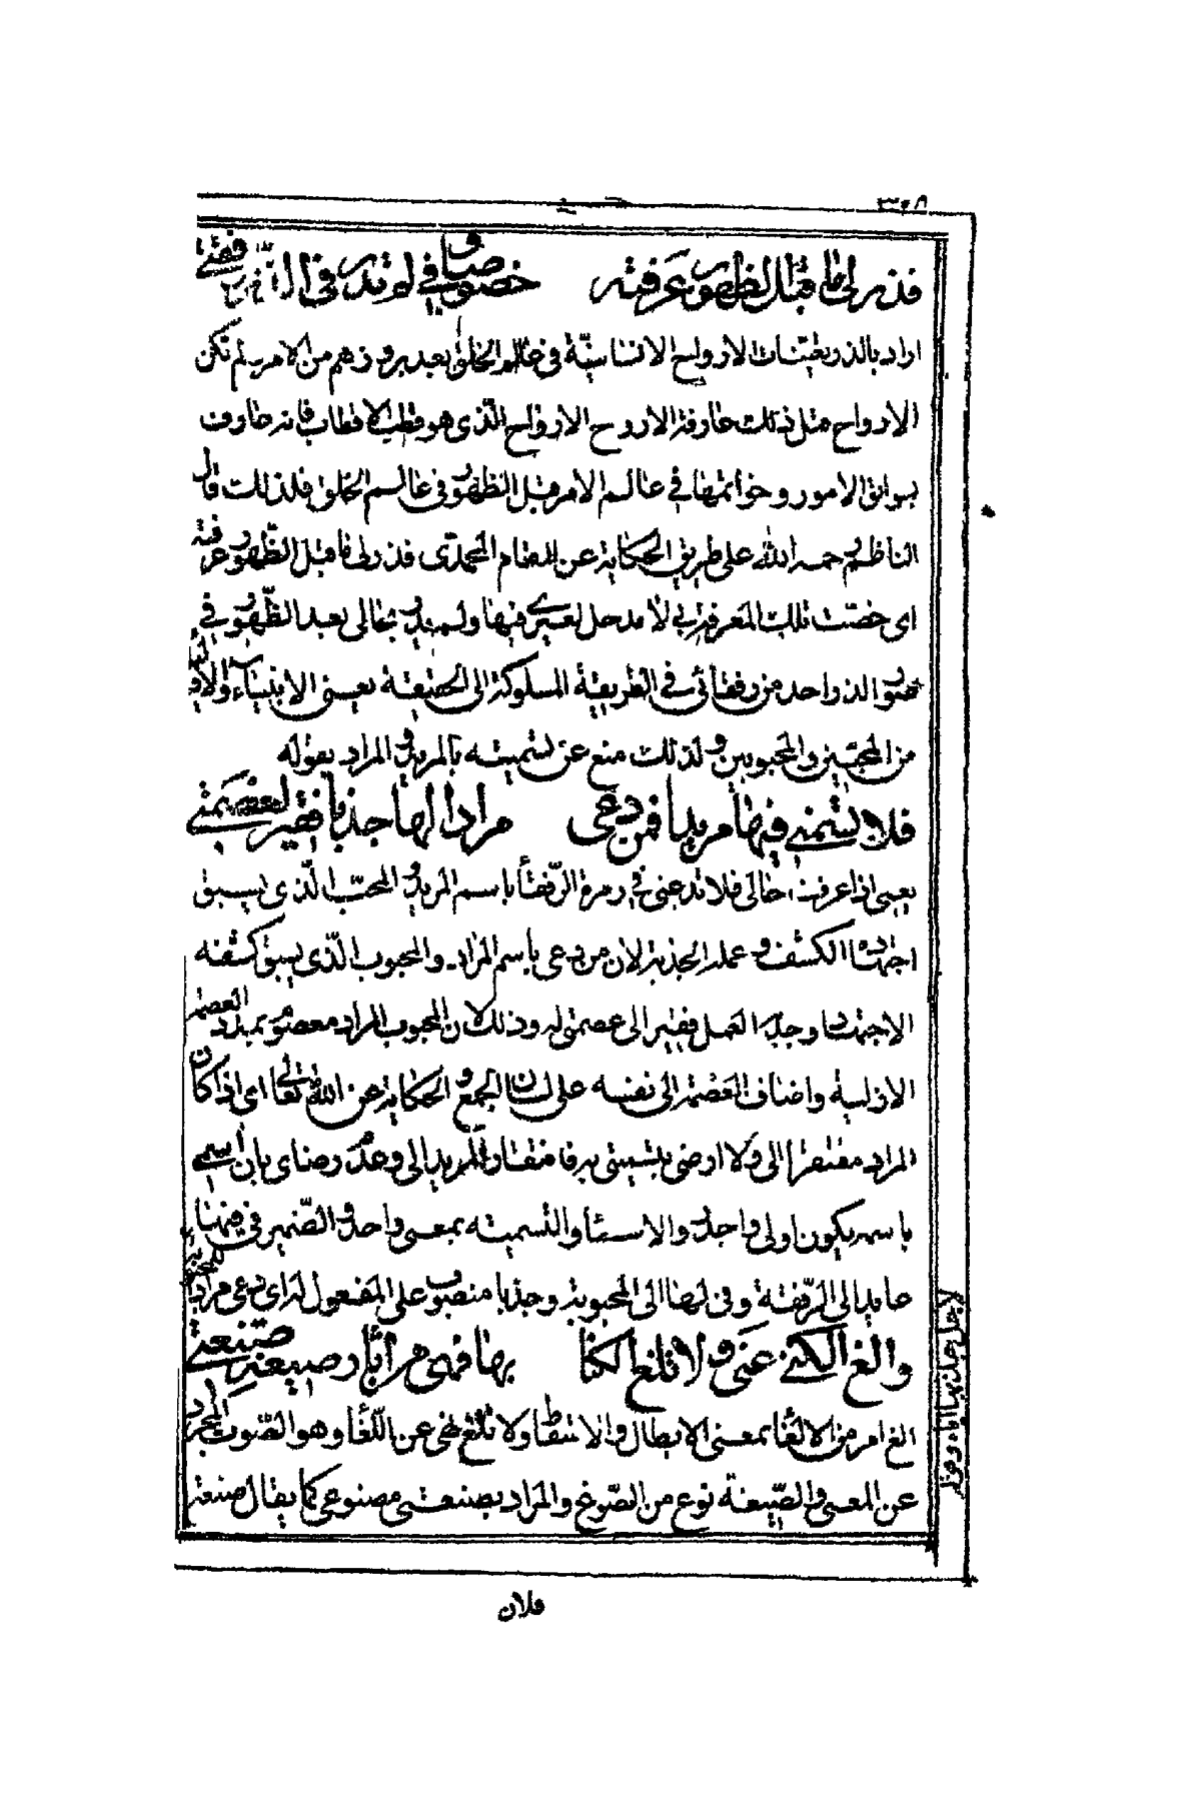 ٣٠٨
فذرلي ما قبل الظهور عرفته خصوصا وفي لم تدر في الذر رفقتي
اراد بالذر تعينات الارواح الانسانية في عالم الخلق بعد بروزهم من الامر لم تكن
الارواح مثل ذلك عارفة الا روح الارواح الذي هو قطب الاقطاب فانه عارف
بسوابق الامور وخواتمها في عالم الامر قبل الظهور في عالم الخلق فلذلك قال
الناظم رحمه الله على طريق الحكاية عن المقام المحمدي فذرلي ما قبل الظهور عرفته
اي خصت تلك المعرفة بي لا مدخل لغيري فيها ولم يدر بحالي بعد الظهور في
صور الذر واحد من رفقائي في الطريقة المسلوكة الى الحقيقة يعني الانبياء والاوليا
من المحبين والمحبوبين ولذلك منع عن تسميته بالمريد والمراد بقوله
فلا تسمني فيها مريدا فمن دعي مرادا لها جذبا فقير لعصمتي
يعني اذا عرفت حالي فلا تدعني في زمرة الرفقا باسم المريد والمحب الذي يسبق
اجتهاده الكشف وعمله الجذبة لان من دعي باسم المراد والمحبوب الذي يسبق كشفه
الاجتهاد وجذبه العمل فقير الى عصمتي له وذلك لان المحبوب المراد معصوم بمدد العصمة
الازلية واضاف العصمة الى نفسه على لسان الجمع والحكاية عن الله تعالى اي اذا كان
المراد مفتقرا الى ولا ارضى بتسميتي به فافتقار المريد الى وعدم رضاي بان اسمى
باسمه يكون اولى واجدر والاسماء والتسمية بمعنى واحد والضمير في فيها
عايد الى الرفقة وفي لها الى المحبوبة وجذبا منصوب على المفعول له اي دعي مرادا للمحبوبة
لاجل جذبها اياه
والغ الكنى عني ولا تلغ الكنا بها فهي من اثار صيغة صنعتي
الغ امر من الالغا بمعنى الابطال والاسقاط ولا تلغ نهي عن اللغا وهو الصوت المجرد
عن المعنى والصيغة نوع من الصوغ والمراد بصنعتي مصنوعي كما يقال صنعة
فلان